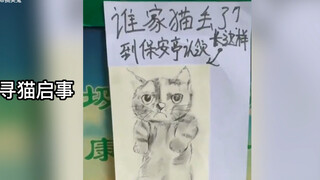 谁家猫丢了
长这样
到保安亭认领
寻猫启事
圾
康